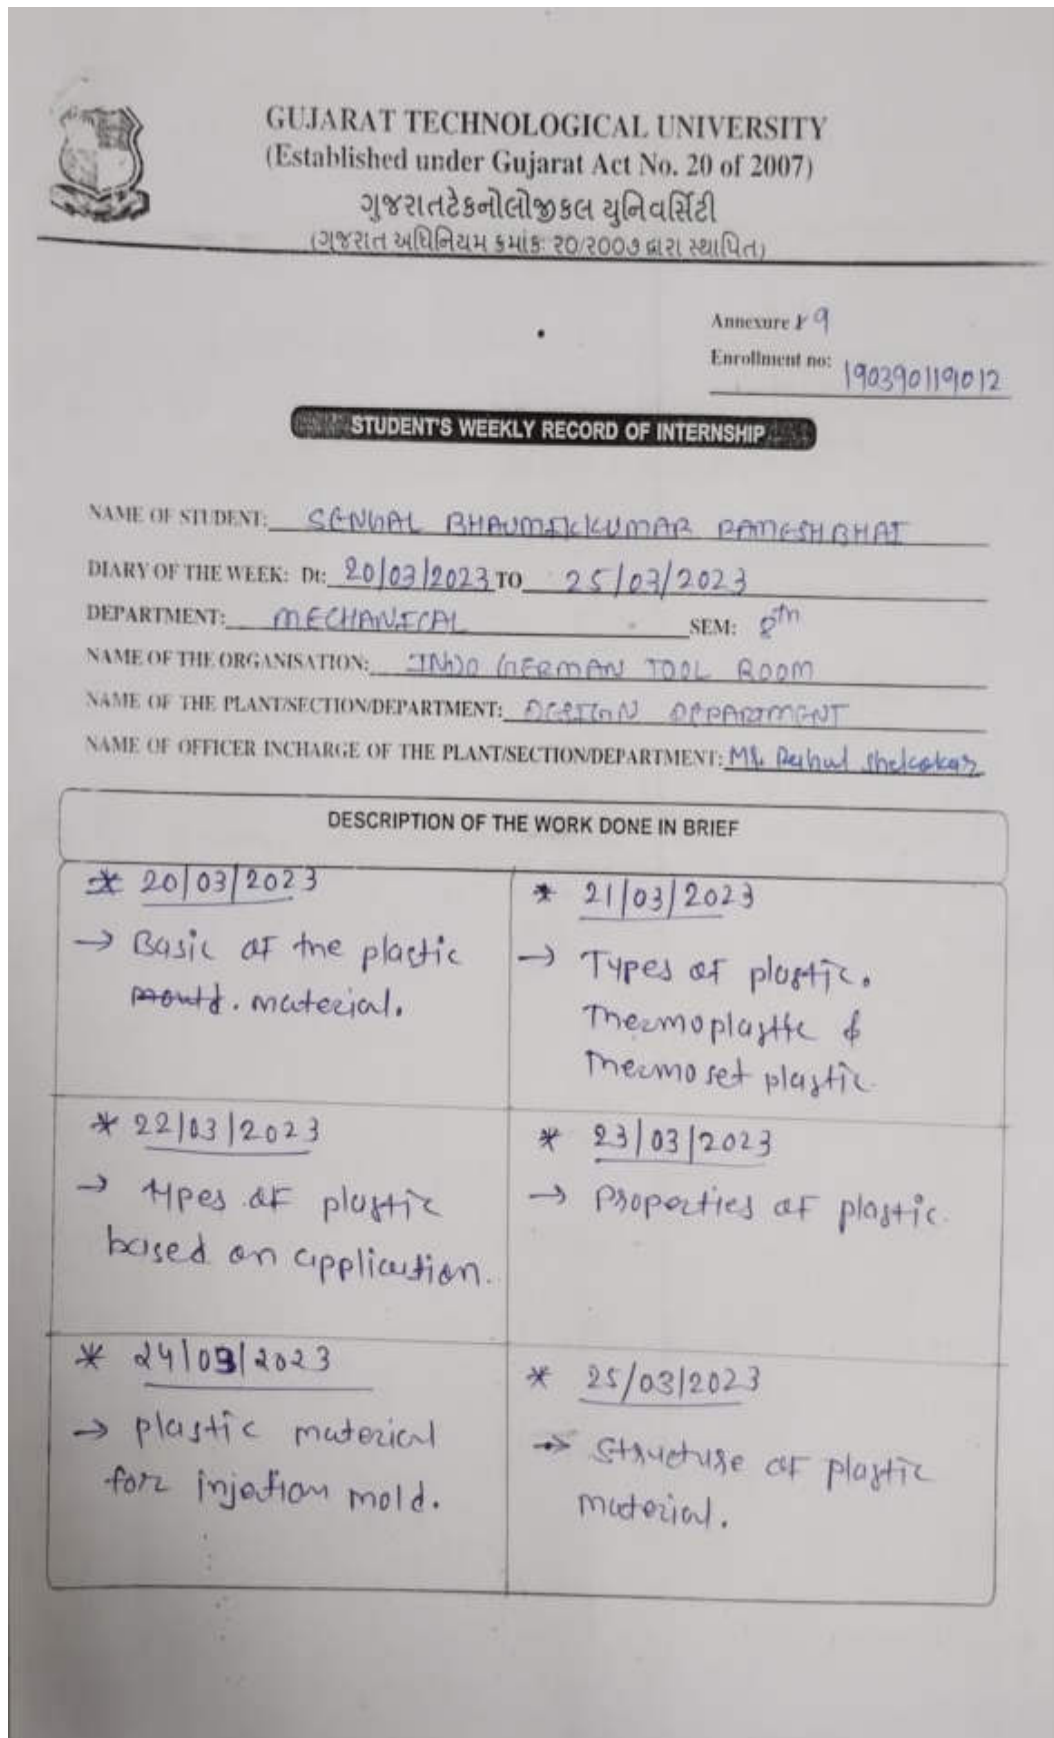 GUJARAT TECHNOLOGICAL UNIVERSITY
(Established under Gujarat Act No. 20 of 2007)
ગુજરાતટેકનોલોજીકલ યુનિવર્સિટી
(ગુજરાત અધિનિયમ ક્રમાંક: ૨૦/૨૦૦૭ દ્વારા સ્થાપિત)
Annexure 9
Enrollment no: 190390119012
STUDENT'S WEEKLY RECORD OF INTERNSHIP
NAME OF STUDENT: SENWAL BHAUMIKKUMAR RAMESHBHAI
DIARY OF THE WEEK: Dt: 20/03/2023 TO 25/03/2023
DEPARTMENT: MECHANICAL SEM: 8th
NAME OF THE ORGANISATION: INDO GERMAN TOOL ROOM
NAME OF THE PLANT/SECTION/DEPARTMENT: DESIGN DEPARTMENT
NAME OF OFFICER INCHARGE OF THE PLANT/SECTION/DEPARTMENT: Mr. Rahul
DESCRIPTION OF THE WORK DONE IN BRIEF
* 20/03/2023
→ Basic of the plastic
mould. material.
* 21/03/2023
→ Types of plastic.
Thermoplastic &
Thermoset plastic
* 22/03/2023
→ types of plastic
based on application.
* 23/03/2023
→ Properties of plastic.
* 24/03/2023
→ plastic material
for injection mold.
* 25/03/2023
→ Structure of plastic
material.